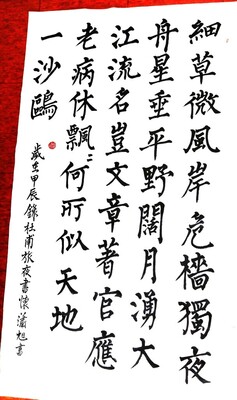 細草微風岸危檣獨夜
舟星垂平野闊月湧大
江流名豈文章著官應
老病休飄〻何所似天地
一沙鷗
歲在甲辰錄杜甫旅夜書懷瀟旭書